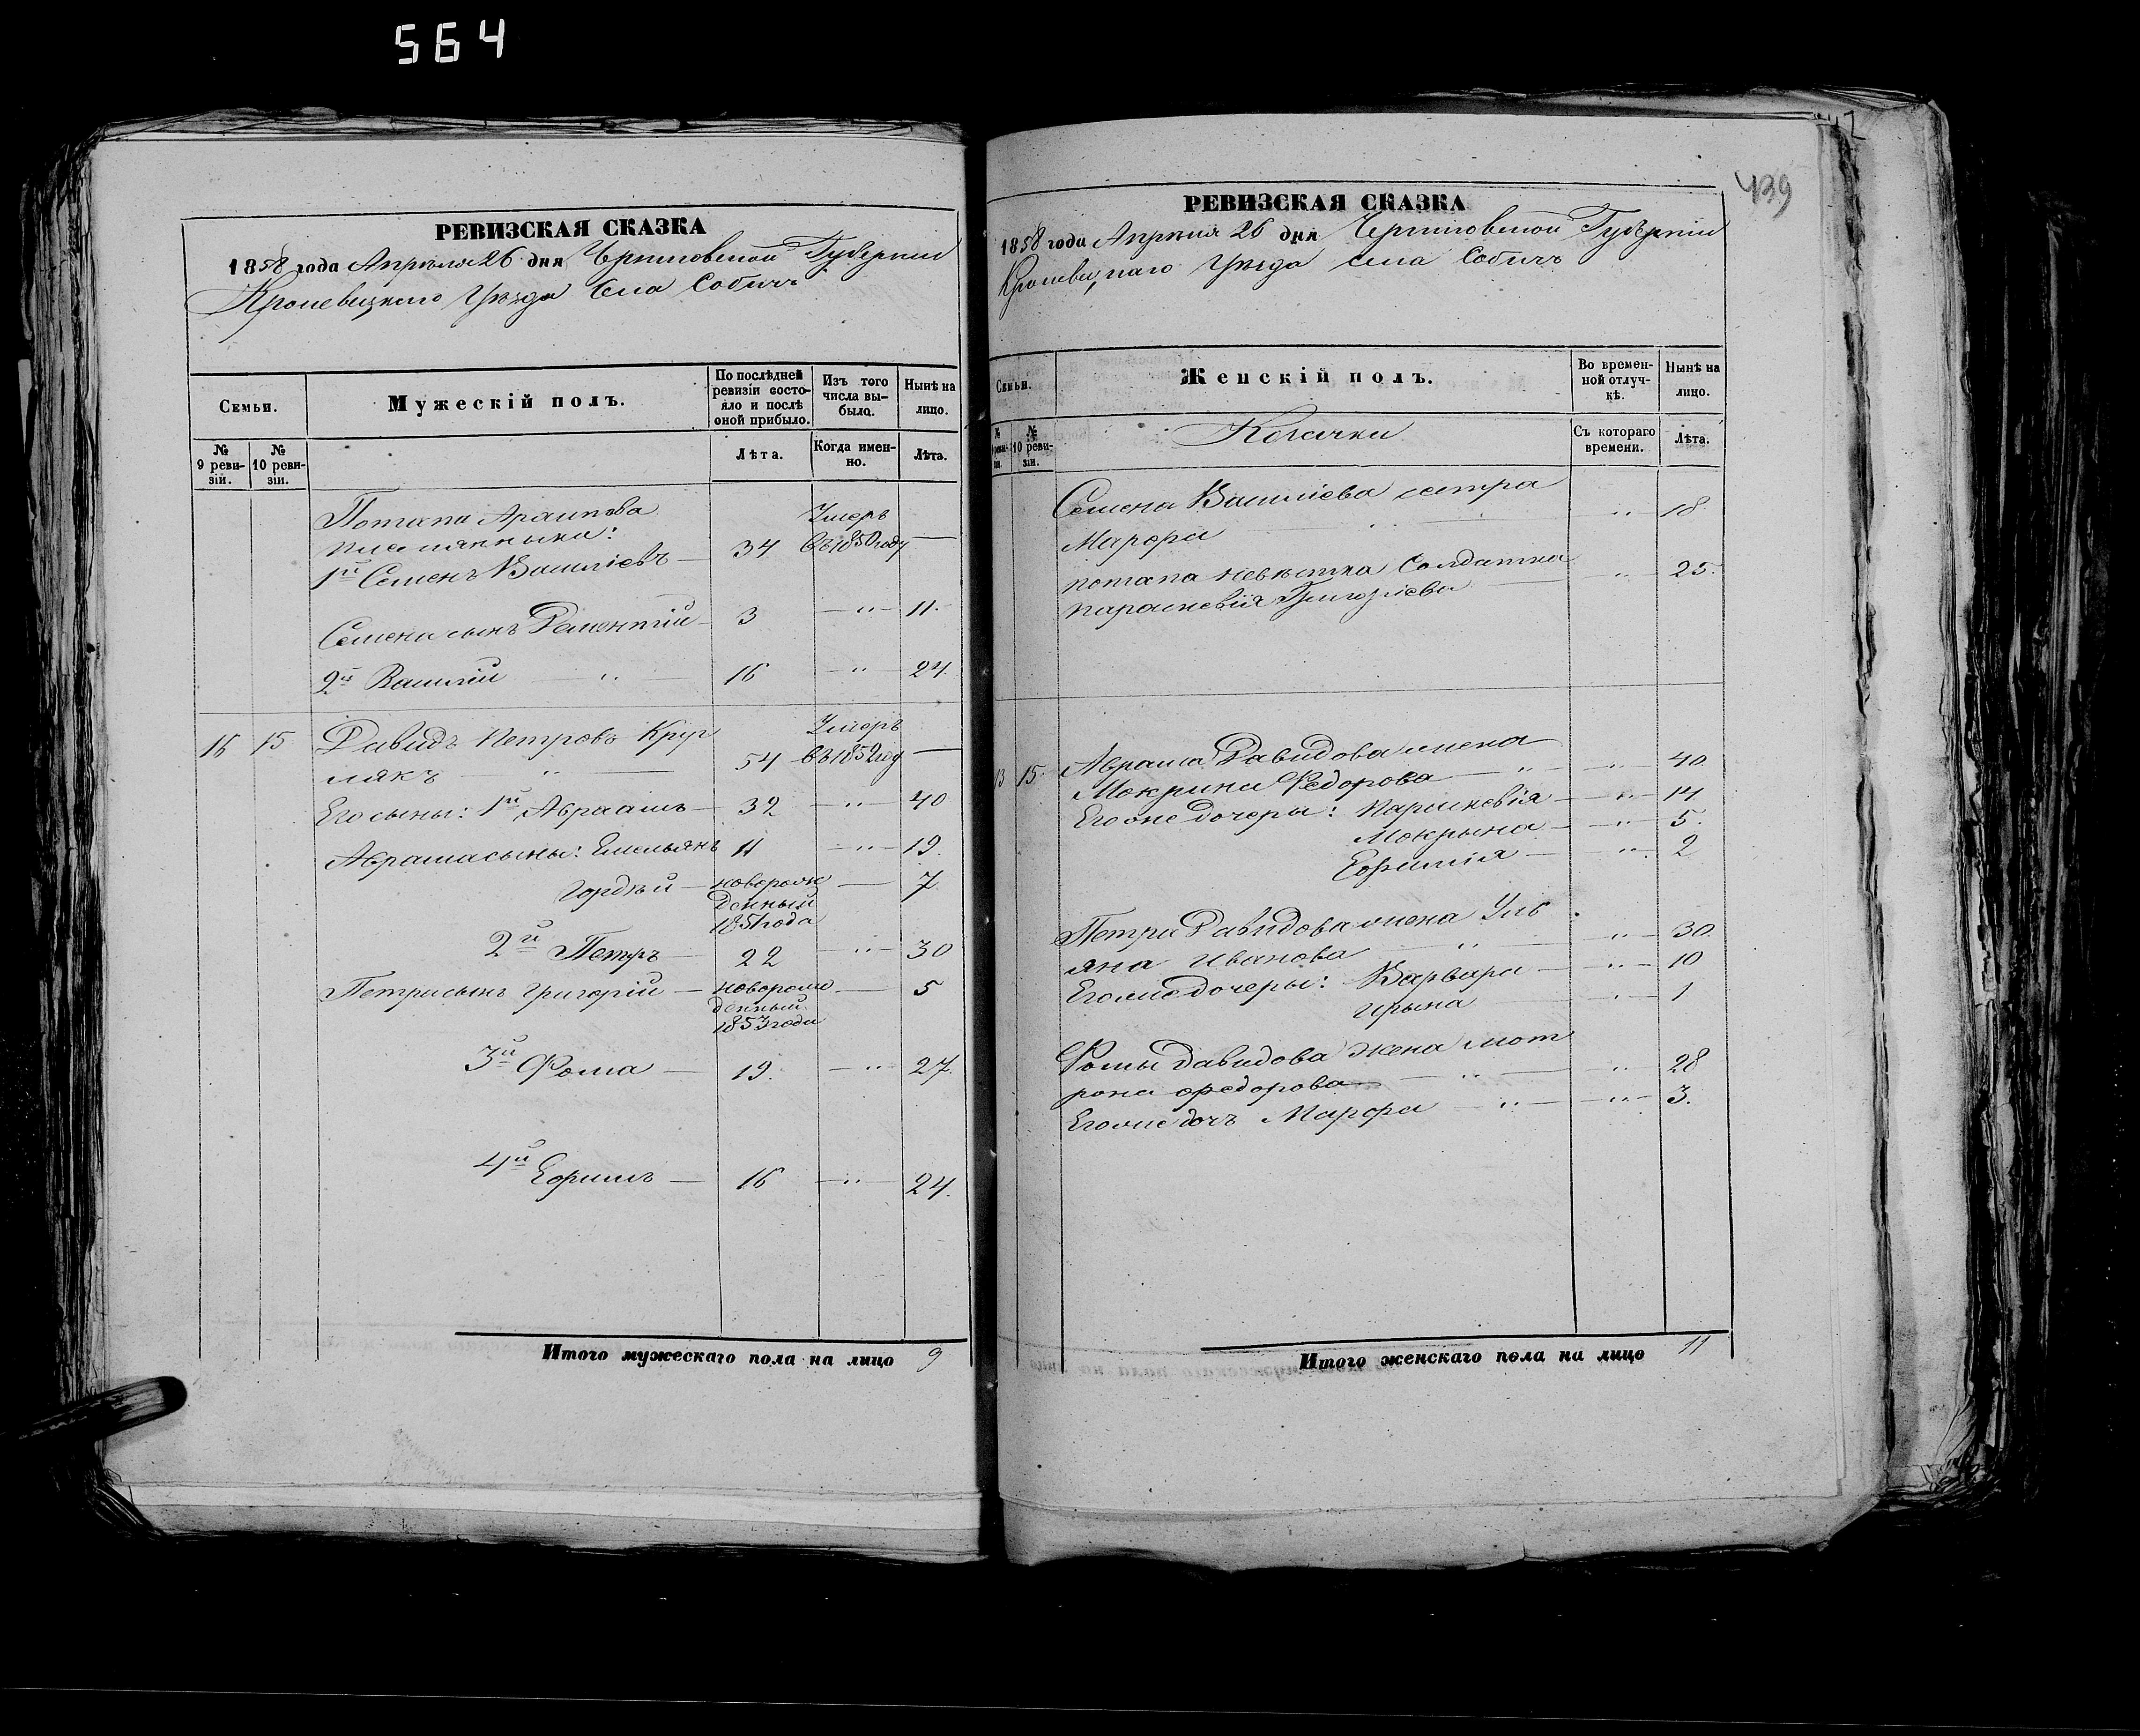 564
439
РЕВИЗСКАЯ СКАЗКА
1858 года Апреля 26 дня Черниговской Губернии
Кролевецкаго Уѣзда Села Собичъ
Семьи.
Мужескій полъ.
По послѣдней ревизіи состояло и послѣ оной прибыло.
Изъ того числа выбыло.
Нынѣ на лицо.
№ 9 ревизіи.
№ 10 ревизіи.
Лѣта.
Когда именно.
Лѣта.
Потапа Архипова
племянники:
1й Семенъ Василіевъ — 34 Умеръ въ 1850 году —
Семена сынъ Дементій 3 — " — 11.
2й Василій " — 16 — " — 24.
16 15 Давидъ Петровъ Круг
лякъ " — 54 Умеръ въ 1852 год —
Его сыны: 1й Авраамъ — 32 — " — 40
Абрама сыны: Емельянъ 11 — " — 19.
Гордѣй — новорожденный 1851 года — 7
2й Петръ — 22 — " — 30
Петра сынъ Григорій — новорожденный 1853 года — 5
3й Фома — 19. — " 27.
4й Ефимъ — 16 — " — 24.
Итого мужескаго пола на лицо 9
РЕВИЗСКАЯ СКАЗКА
1858 года Апреля 26 дня Черниговской Губерніи
Кролевецкаго Уѣзда села Собичъ
Семьи.
Женскій полъ.
Во временной отлучкѣ.
Нынѣ на лицо.
10 ревизіи.
Козачки
Съ котораго времени.
Лѣта.
Семена Василіева сестра
Марфа " 18
Потапа невѣстка Солдатка
Параскевія Григоріева " 25.
13 15. Абрама Давидова жена
Мокрина Федорова — " — " — 40.
Его же дочеры: Параскевія — " — 14
Мокрына — " — 5.
Ефимія — " 2
Петра Давидова жена Уль
яна Иванова " — " — 30.
Его же дочеры: Варвара — " — 10
Ирына " — 1
Фомы Давидова жена Мот
рона Федорова — " — " 28
Его же дочь Марфа — " — " — 3.
Итого женскаго пола на лицо 11